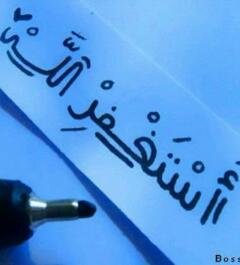 أستغفر اللہ
Boss